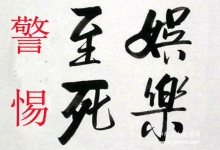 娛樂
至死
警惕